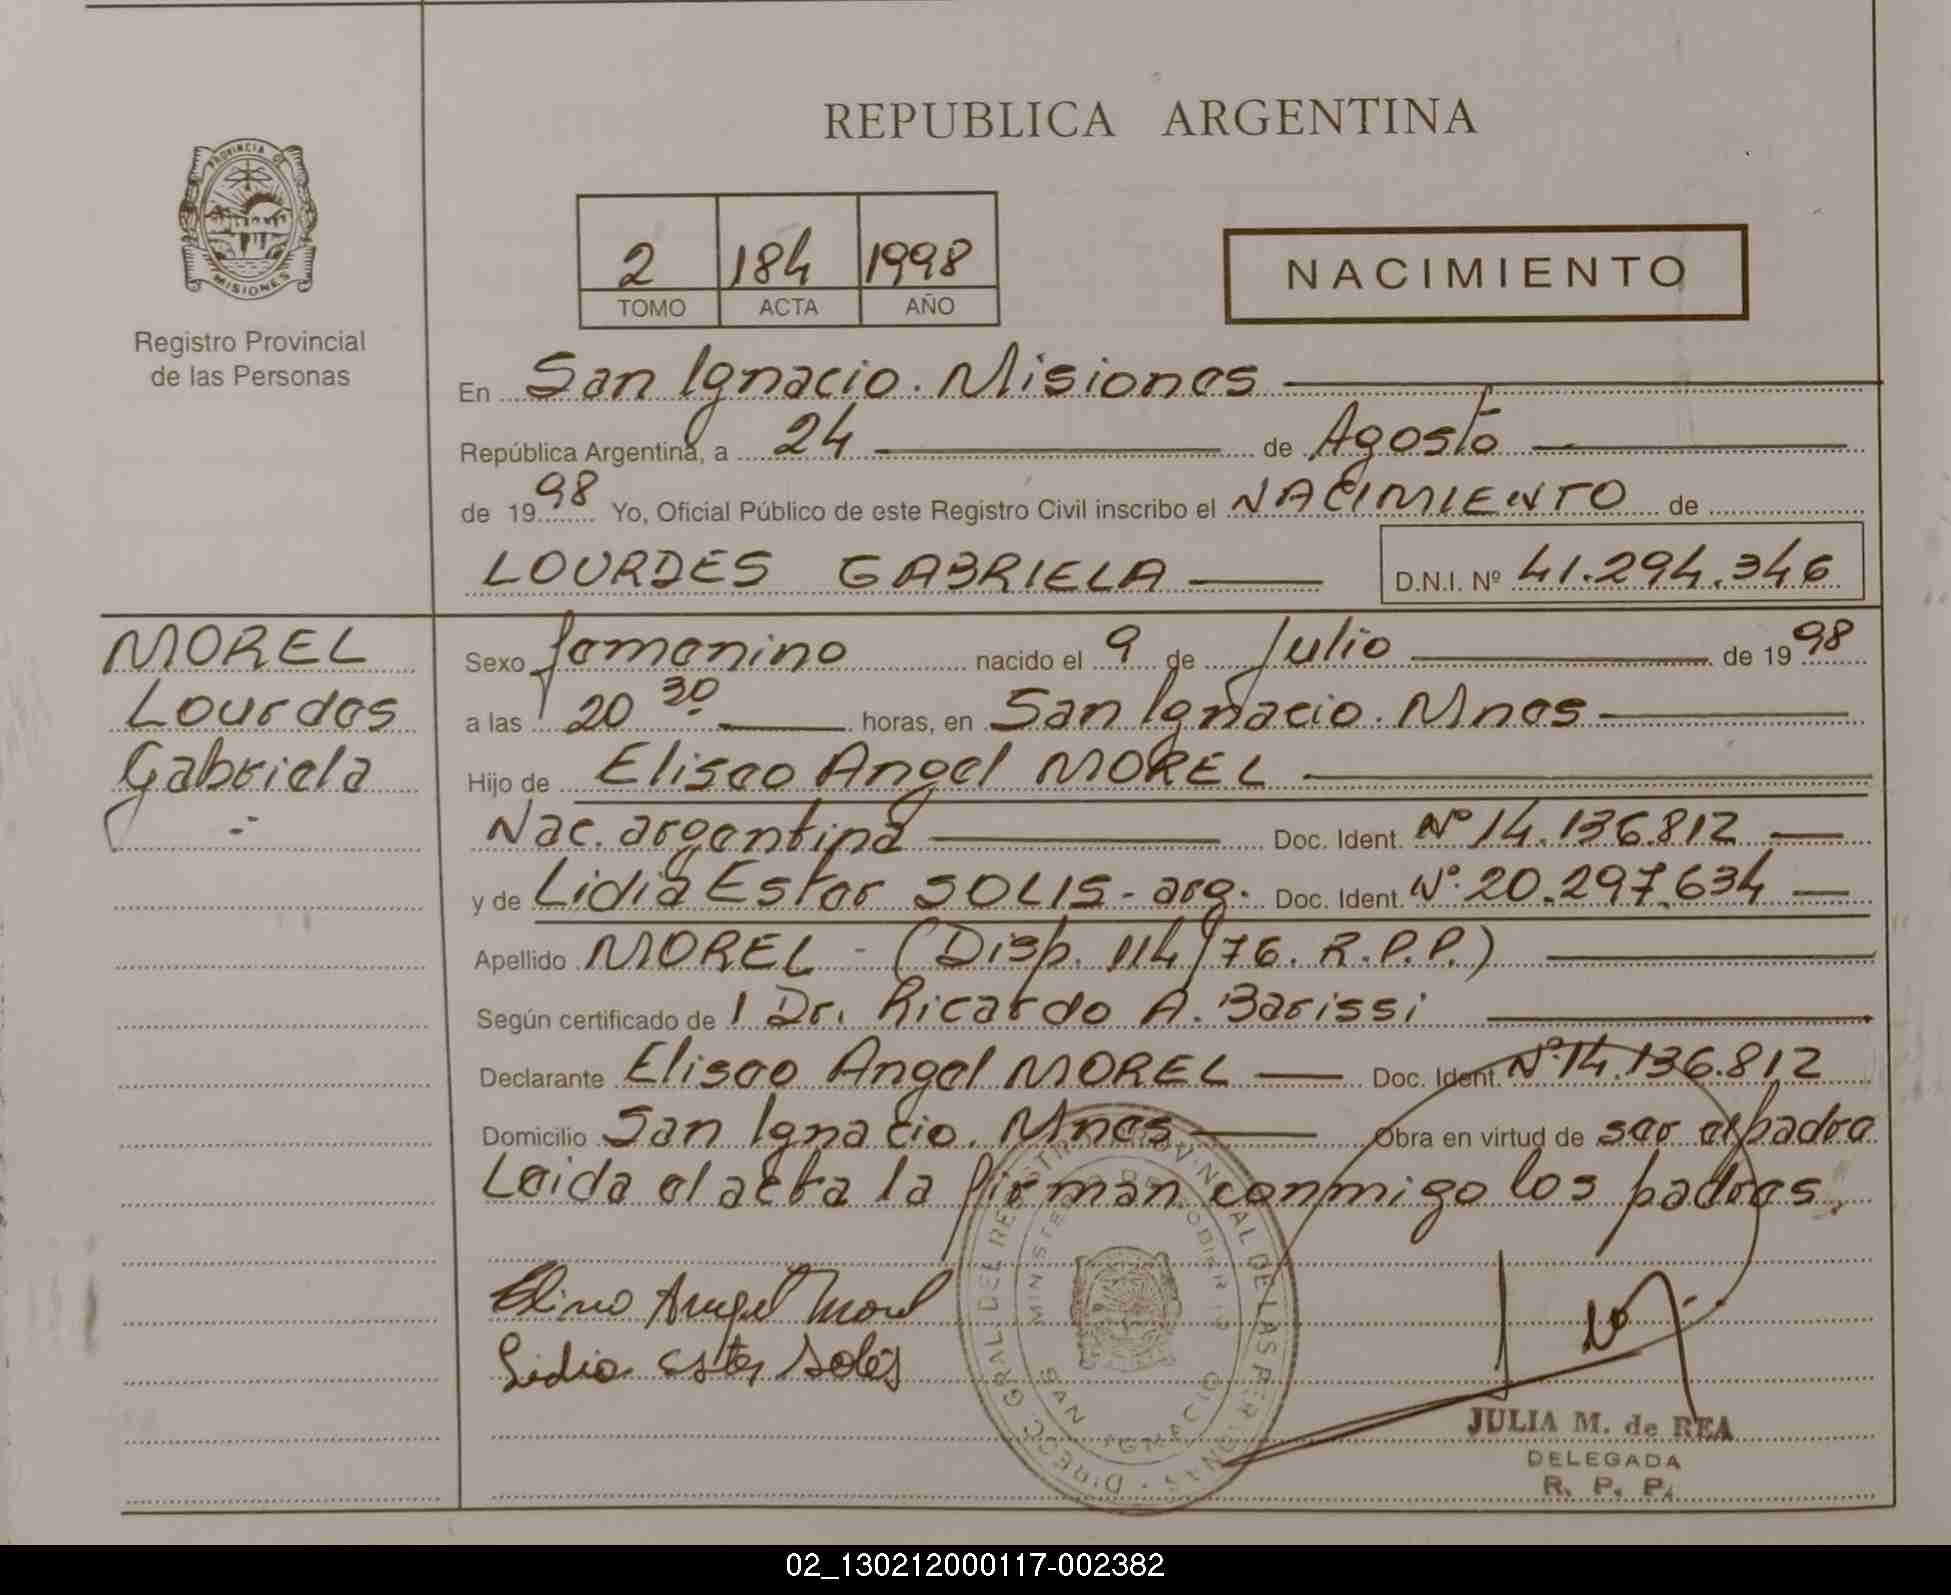 REPUBLICA ARGENTINA
PROVINCIA DE
MISIONES
Registro Provincial
de las Personas
2 184 1998
TOMO ACTA AÑO
NACIMIENTO
En San Ignacio. Misiones
República Argentina, a 24 de Agosto
de 1998 Yo, Oficial Público de este Registro Civil inscribo el NACIMIENTO de
LOURDES GABRIELA D.N.I. Nº 41.294.346
MOREL
Lourdes
Gabriela
Sexo femenino nacido el 9 de Julio de 1998
a las 20 30 horas, en San Ignacio. Mnes
Hijo de Eliseo Angel MOREL
Nac. argentina Doc. Ident. Nº 14.136.812
y de Lidia Ester SOLIS - arg. Doc. Ident. Nº 20.297.634
Apellido MOREL - (Disp. 114/76. R.P.P.)
Según certificado de 1 Dr. Ricardo A. Barissi
Declarante Eliseo Angel MOREL Doc. Ident. Nº 14.136.812
Domicilio San Ignacio. Mnes Obra en virtud de ser el padre
Leida el acta la firman conmigo los padres.
Eliseo Angel Morel
Lidia Ester Solis
DIRECC. GRAL. DEL REGISTRO PROVINCIAL DE LAS PERSONAS
MINISTERIO DE GOBIERNO
SAN IGNACIO
JULIA M. de REA
DELEGADA
R. P. P.
02_130212000117-002382